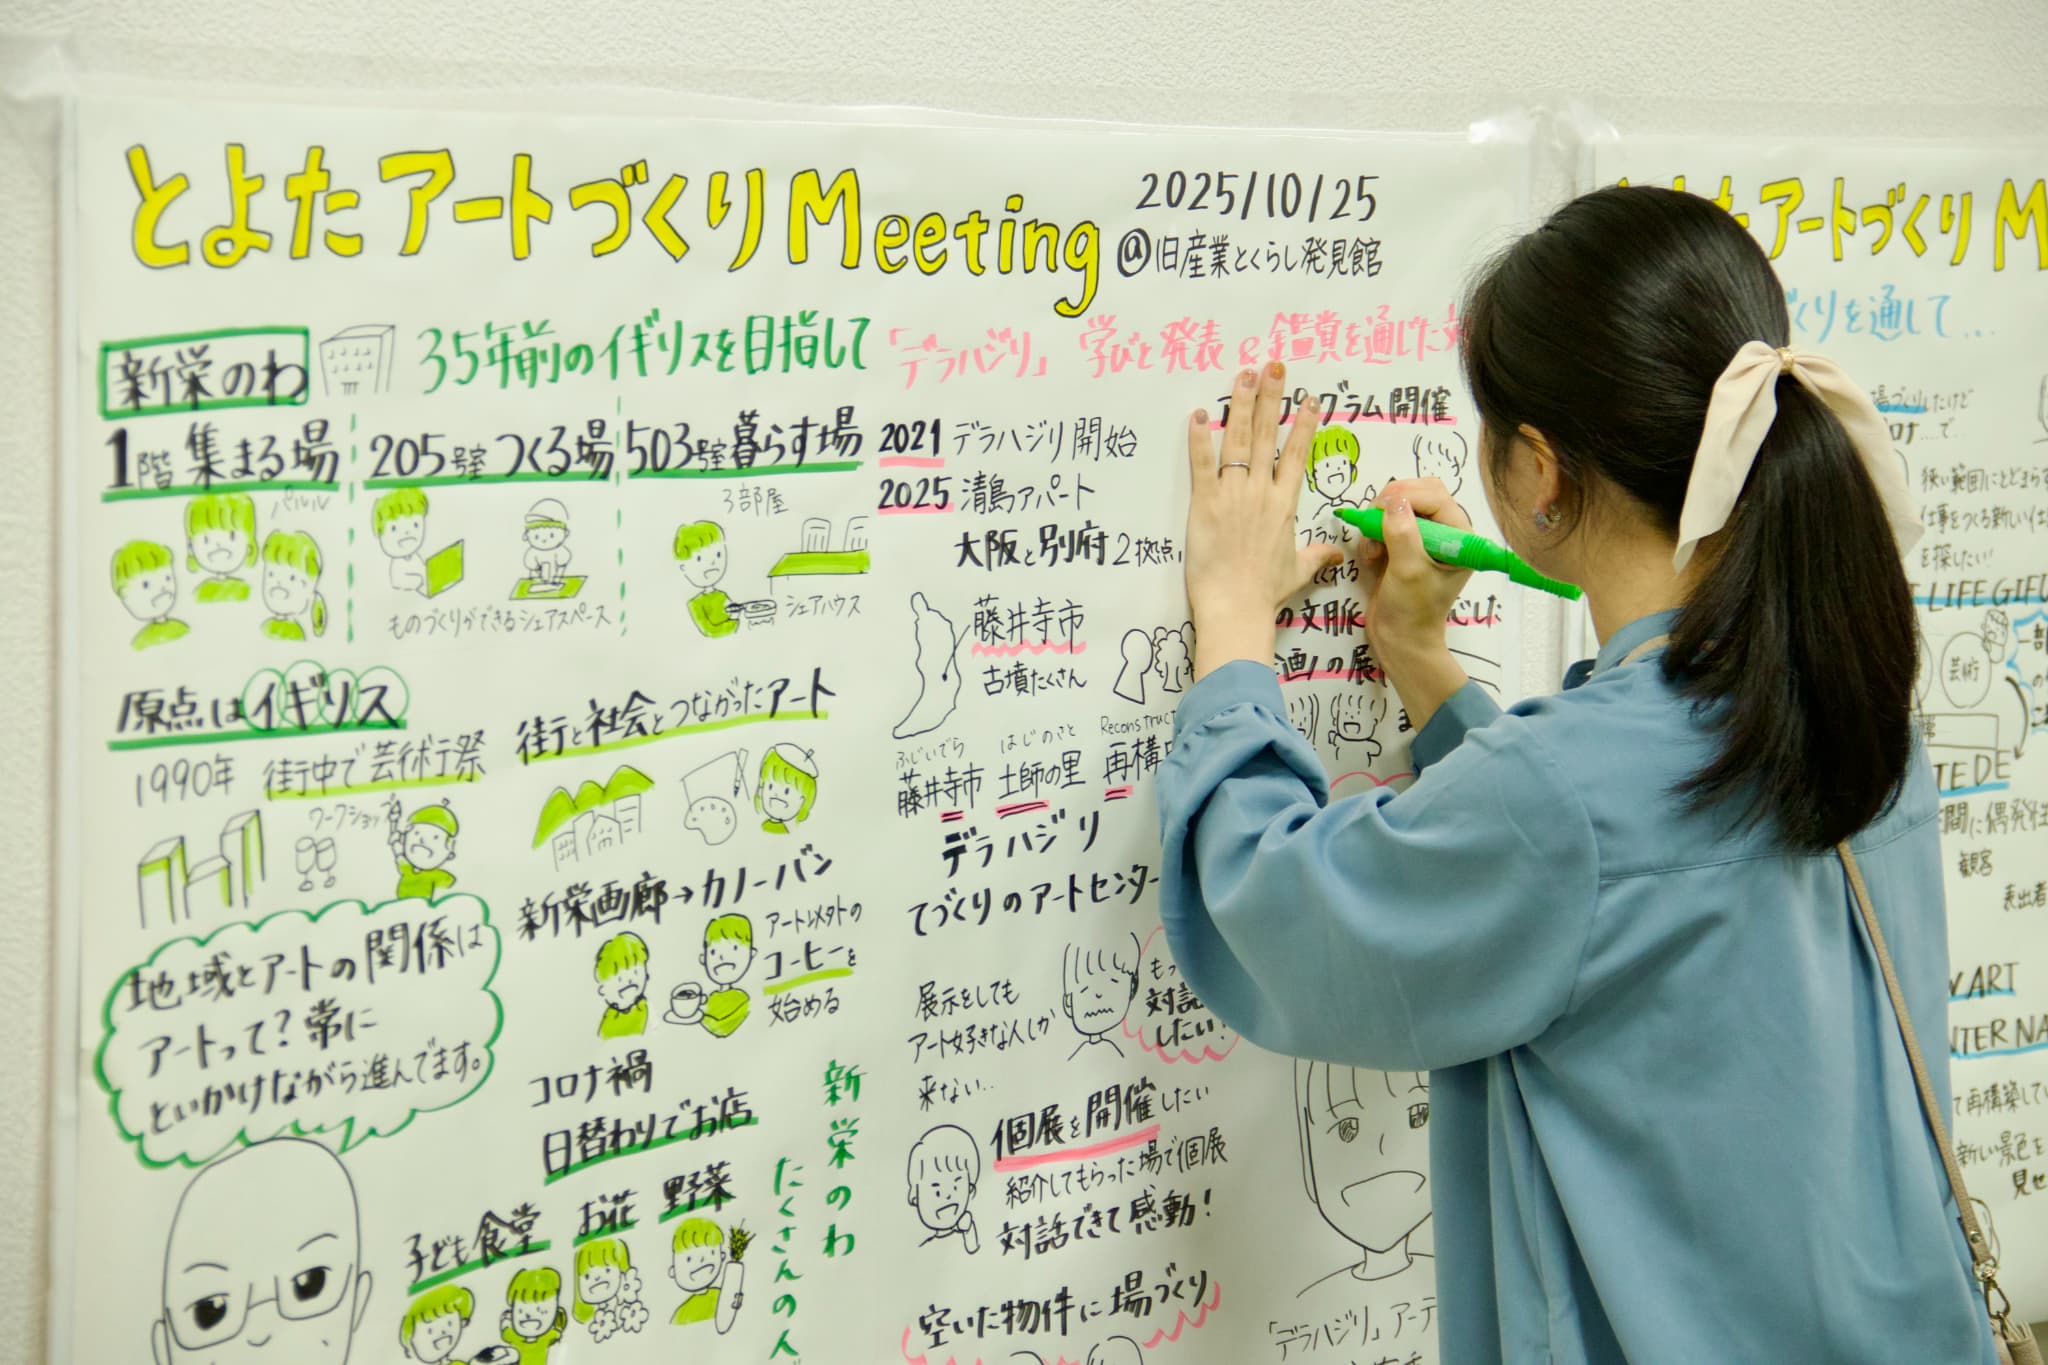 とよたアートづくりMeeting
2025/10/25
@旧産業とくらし発見館
新栄のわ
35年前のイギリスを目指して
1階 集まる場
205号室 つくる場
503号室 暮らす場
パルル
ものづくりができるシェアスペース
3部屋
シェアハウス
原点はイギリス
1990年 街中で芸術祭
ワークショップ
地域とアートの関係は
アートって?常に
といかけながら進んでます。
街と社会とつながったアート
新栄画廊→カノーバン
コーヒーを
始める
コロナ禍
日替わりでお店
子ども食堂
お花
野菜
新栄のわ
たくさんの人
「デラハジリ」 学びと発表&鑑賞を通じた
2021 デラハジリ開始
2025 清島アパート
大阪と別府2拠点
藤井寺市
古墳たくさん
ふじいでら
藤井寺市
はじのさと
土師の里
Reconstruct
再構
デラハジリ
てづくりのアートセンター
展示をしても
アート好きな人しか
来ない..
もっ
対話
したい!
個展を開催したい
紹介してもらった場で個展
対話できて感動!
空いた物件に場づくり
グラム開催
フラッと
くれる
の文脈
の展
「デラハジリ」アーテ
アートづくりM
くりを通して...
狭い範囲にとどまらず
仕事をつくる新しい仕
を探したい!
LIFE GIFU
芸術
TEDE
間に偶発性
観客
表出者
ART
INTER NA
て再構築してい
新しい景色を
見せ